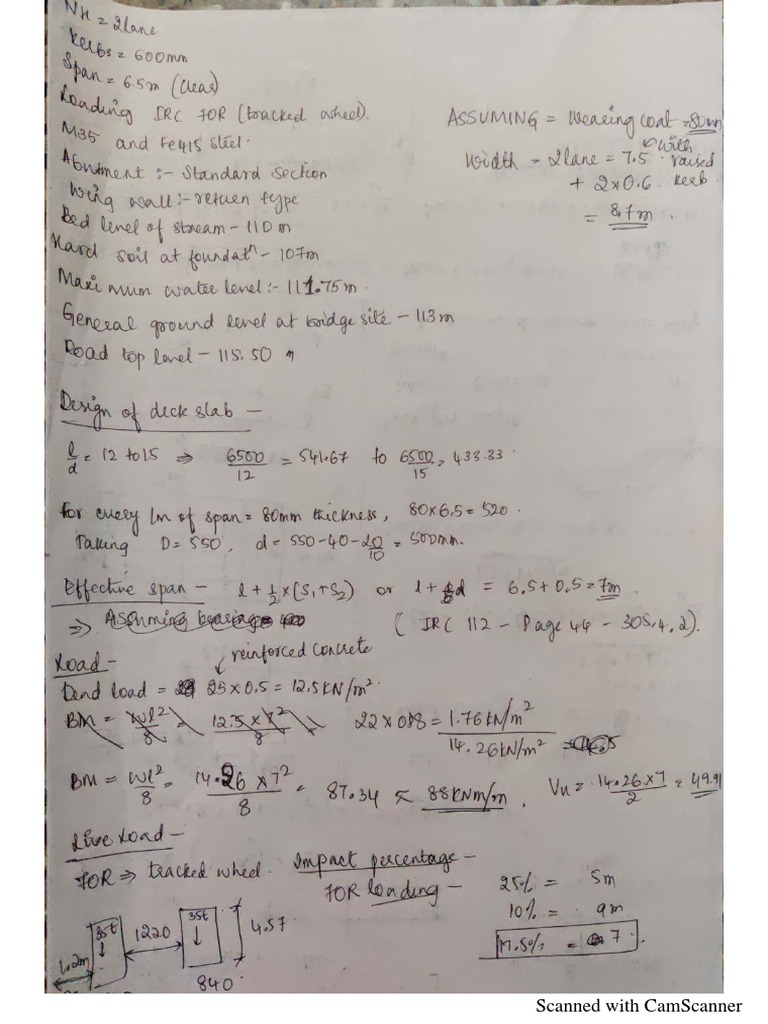 NH = 2lane
Kerbs = 600mm
Span = 6.5m (Clear)
Loading IRC 70R (tracked wheel).
M35 and Fe415 steel.
Abutment :- Standard Section
Wing wall :- return type
Bed level of stream - 110 m
Hard soil at foundatn - 107m
Maximum water level :- 111.75m.
General ground level at bridge site - 113m
Road top level - 115.50 m
ASSUMING = Wearing coat = 80mm
with
Width = 2lane = 7.5 raised
+ 2x0.6 kerb
= 8.7m.
Design of deck slab -
l/d = 12 to 15 ⇒ 6500/12 = 541.67 to 6500/15 = 433.33.
For every 1m of span = 80mm thickness, 80x6.5 = 520.
Taking D = 550, d = 550-40-20/10 = 500mm.
Effective span - l + 1/2 x (S1+S2) or l + d = 6.5+0.5 = 7m.
⇒ Assuming bearing = 400
( IRC 112 - Page 44 - 305.4.2).
reinforced concrete
Load -
Dead load = 25 x 0.5 = 12.5 KN/m².
BM = wl²/8 = 12.5x7²/8
22 x 0.08 = 1.76 KN/m²
14.26 KN/m²
BM = wl²/8 = 14.26 x 7²/8 = 87.34 ≈ 88KNm/m. Vu = 14.26x7/2 = 49.91
Live Load -
70R ⇒ tracked wheel. Impact percentage -
70R loading -
25% = 5m
10% = 9m
17.5% = 7.
35t
1220
35t
4.57
1.2m
840.
Scanned with CamScanner